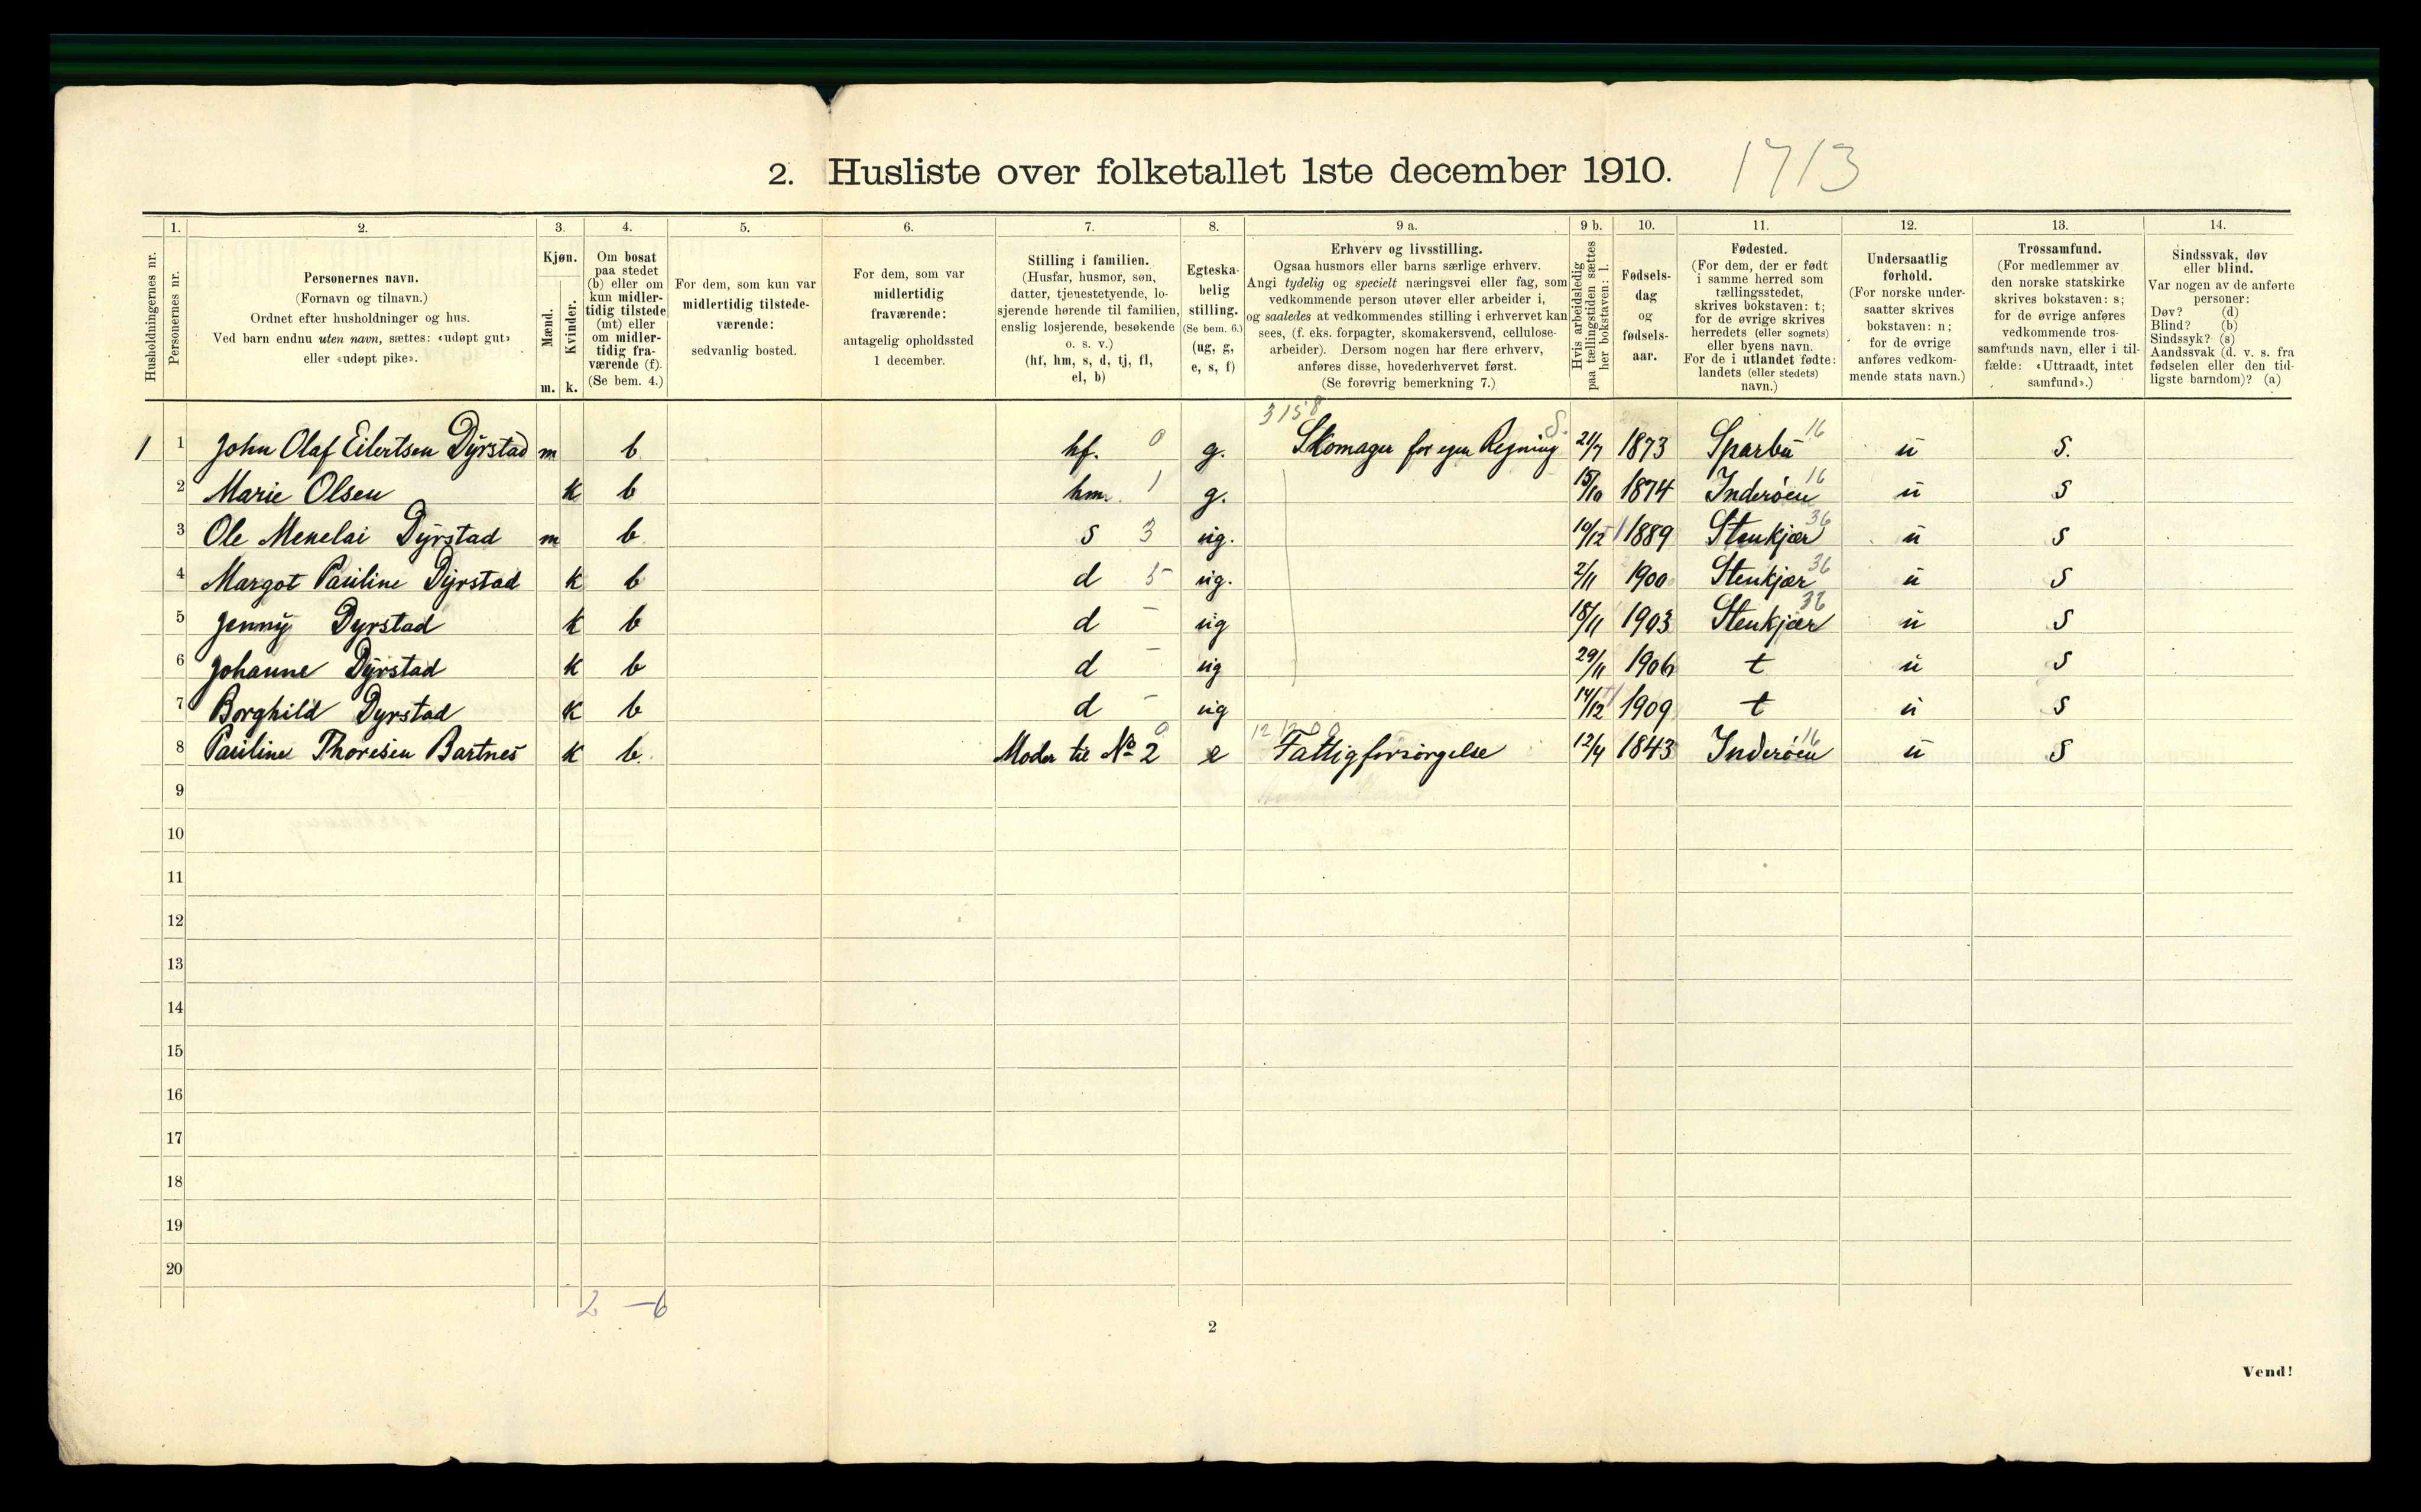 2. Husliste over folketallet 1ste december 1910. 1713
1. 2. 3. 4. 5. 6. 7. 8. 9 a. 9 b. 10. 11. 12. 13. 14.
Husholdningernes nr.
Personernes nr.
Personernes navn.
(Fornavn og tilnavn.)
Ordnet efter husholdninger og hus.
Ved barn endnu uten navn, sættes: «udøpt gut»
eller «udøpt pike».
Kjøn.
Mænd.
Kvinder.
m. k.
Om bosat
paa stedet
(b) eller om
kun midler-
tidig tilstede
(mt) eller
om midler-
tidig fra-
værende (f).
(Se bem. 4.)
For dem, som kun var
midlertidig tilstede-
værende:
sedvanlig bosted.
For dem, som var
midlertidig
fraværende:
antagelig opholdssted
1 december.
Stilling i familien.
(Husfar, husmor, søn,
datter, tjenestetyende, lo-
sjerende hørende til familien,
enslig losjerende, besøkende
o. s. v.)
(hf, hm, s, d, tj, fl,
el, b)
Egteska-
belig
stilling.
(Se bem. 6.)
(ug, g,
e, s, f)
Erhverv og livsstilling.
Ogsaa husmors eller barns særlige erhverv.
Angi tydelig og specielt næringsvei eller fag, som
vedkommende person utøver eller arbeider i,
og saaledes at vedkommendes stilling i erhvervet kan
sees, (f. eks. forpagter, skomakersvend, cellulose-
arbeider). Dersom nogen har flere erhverv,
anføres disse, hovederhvervet først.
(Se forøvrig bemerkning 7.)
Hvis arbeidsledig
paa tællingstiden sættes
her bokstaven: l.
Fødsels-
dag
og
fødsels-
aar.
Fødested.
(For dem, der er født
i samme herred som
tællingsstedet,
skrives bokstaven: t;
for de øvrige skrives
herredets (eller sognets)
eller byens navn.
For de i utlandet fødte:
landets (eller stedets)
navn.)
Undersaatlig
forhold.
(For norske under-
saatter skrives
bokstaven: n;
for de øvrige
anføres vedkom-
mende stats navn.)
Trossamfund.
(For medlemmer av
den norske statskirke
skrives bokstaven: s;
for de øvrige anføres
vedkommende tros-
samfunds navn, eller i til-
fælde: «Uttraadt, intet
samfund».)
Sindssvak, døv
eller blind.
Var nogen av de anførte
personer:
Døv? (d)
Blind? (b)
Sindssyk? (s)
Aandssvak (d. v. s. fra
fødselen eller den tid-
ligste barndom)? (a)
3158
1 1 John Olaf Eilertsen Dyrstad m b hf. 0 g. Skomager for egen Regning S. 21/7 1873 Sparbu 16 n s.
2 Marie Olsen k b hm. 1 g. 15/10 1874 Inderøen 16 n s
3 Ole Menelai Dyrstad m b s 3 ug. 10/12 1889 Stenkjær 36 n s
4 Margot Pauline Dyrstad k b d 5 ug. 2/11 1900 Stenkjær 36 n s
5 Jenny Dyrstad k b d - ug 18/11 1903 Stenkjær 36 n s
6 Johanne Dyrstad k b d - ug 29/11 1906 t n s
7 Borghild Dyrstad k b d - ug 14/12 1909 t n s
8 Pauline Thoresen Bartnes k b. Moder til No 2 0 e Fattigforsørgelse 12/4 1843 Inderøen 16 n s
9
10
11
12
13
14
15
16
17
18
19
20
2 - 6
2
Vend!